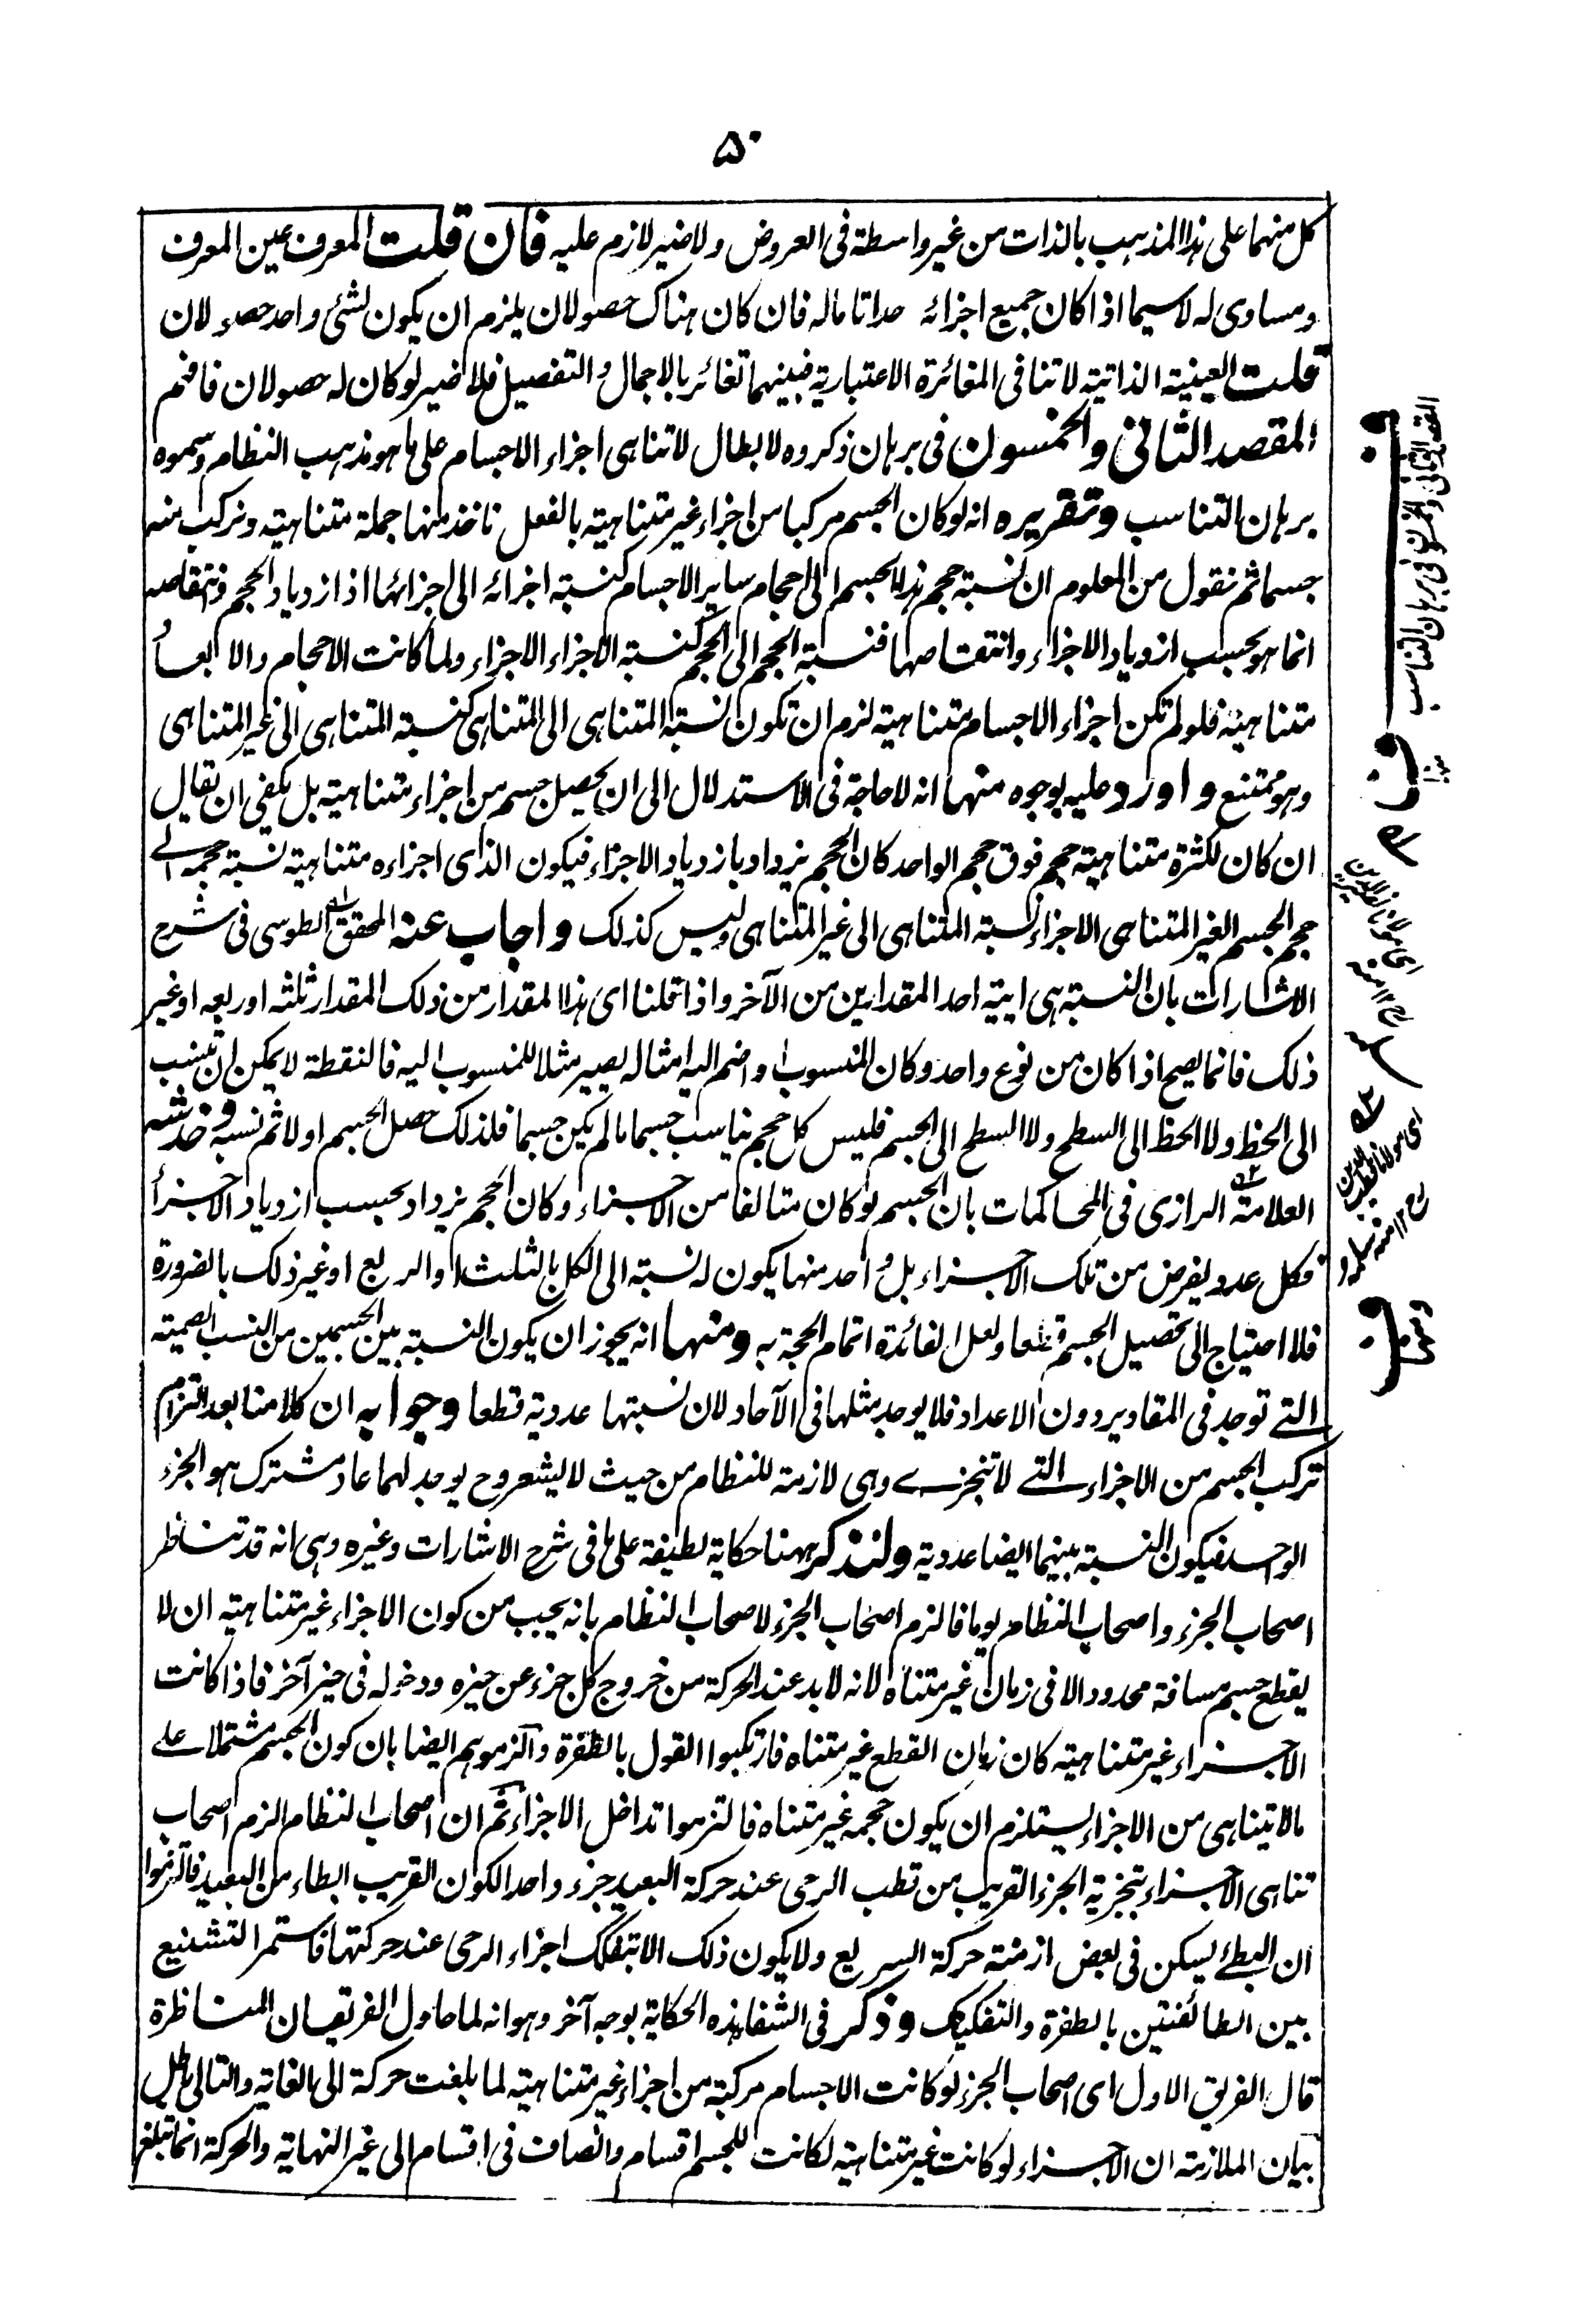 ۵۰
كل منهما على هذا المذهب بالذات من غير واسطة فى العروض ولا ضير لازم عليه فان قلت المعرف عين المعرف
ومساوى له لاسيما اذا كان جميع اجزائه حدا تاما له فان كان هناك حصولان يلزم ان يكون لشئ واحد حصولان
قلت العينية الذاتية لا تنافى المغائرة الاعتبارية فبينهما تغائر بالاجمال والتفصيل فلا ضير لو كان له حصولان فافهم
المقصد الثانى والخمسون فى برهان ذكروه لابطال لا تناهى اجزاء الاجسام على ما هو مذهب النظام وسموه
برهان التناسب وتقريره انه لو كان الجسم مركبا من اجزاء غير متناهية بالفعل ناخذ منها جملة متناهية ونركب منه
جسما ثم نقول من المعلوم ان نسبة حجم هذا الجسم الى احجام ساير الاجسام كنسبة اجزائه الى اجزائها اذ ازدياد الحجم وانتقاصه
انما هو بحسب ازدياد الاجزاء وانتقاصها فنسبة الحجم الى الحجم كنسبة الاجزاء الاجزاء ولما كانت الاحجام والابعاد
متناهية فلو لم تكن اجزاء الاجسام متناهية لزم ان تكون نسبة المتناهى الى المتناهى كنسبة المتناهى الى غير المتناهى
وهو ممتنع واورد عليه بوجوه منها انه لا حاجة فى الاستدلال الى ان يحصل جسم من اجزاء متناهية بل يكفى ان يقال
ان كان لكثرة متناهية حجم فوق حجم الواحد كان الحجم يزداد بازدياد الاجزاء فيكون الذى اجزاءه متناهية نسبة حجمه الى
حجم الجسم الغير المتناهى الاجزاء نسبة المتناهى الى غير المتناهى وليس كذلك واجاب عنه المحقق الطوسى فى شرح
الاشارات بان النسبة هى ايية احد المقدارين من الآخر واذا قلنا اى هذا المقدار من ذلك المقدار ثلثه او ربعه او غير
ذلك فانما يصح اذا كان من نوع واحد وكان المنسوب اذا ضم اليه امثاله يصير مثلا للمنسوب اليه فالنقطة لا يمكن ان تنسب
الى الخط ولا الخط الى السطح ولا السطح الى الجسم فليس كل حجم يناسب جسما ما لم يكن جسما فلذلك حصل الجسم اولا ثم نسبه وخدشه
العلامة الرازى فى المحاكمات بان الجسم لو كان متالفا من الاجزاء وكان الحجم يزداد بحسب ازدياد الاجزاء
فكل عدد يفرض من تلك الاجزاء بل واحد منها يكون له نسبة الى الكل بالثلث او الربع او غير ذلك بالضرورة
فلا احتياج الى تحصيل الجسم قطعا ولعل الفائدة اتمام الحجة به ومنها انه يجوز ان يكون النسبة بين الجسمين من النسب الصمية
التى توجد فى المقادير دون الاعداد فلا يوجد مثلها فى الآحاد لان نسبتها عددية قطعا وجوابه ان كلامنا بعد التزام
تركب الجسم من الاجزاء التى لا تتجزى وهى لازمة للنظام من حيث لا يشعر وح يوجد لهما عاد مشترك هو الجزء
الواحد فيكون النسبة بينهما ايضا عددية ولنذكر ههنا حكاية لطيفة على ما فى شرح الاشارات وغيره وهى انه قد تناظر
اصحاب الجزء واصحاب النظام يوما فالزم اصحاب الجزء لاصحاب النظام بانه يجب من كون الاجزاء غير متناهية ان لا
يقطع جسم مسافة محدود الا فى زمان غير متناه لانه لا بد عند الحركة من خروج كل جزء عن حيزه ودخوله فى حيز آخر فاذا كانت
الاجزاء غير متناهية كان زمان القطع غير متناه فارتكبوا القول بالطفرة والزموهم ايضا بان كون الجسم مشتملا على
ما لا يتناهى من الاجزاء يستلزم ان يكون حجمه غير متناه فالتزموا تداخل الاجزاء ثم ان اصحاب النظام الزم اصحاب
تناهى الاجزاء بتجزية الجزء القريب من قطب الرحى عند حركة البعيد جزء واحدا لكون القريب ابطاء من البعيد فالتزموا
ان البطئ يسكن فى بعض ازمنة حركة السريع ولا يكون ذلك الا بتفكك اجزاء الرحى عند حركتها فاستمر التشنيع
بين الطائفتين بالطفرة والتفكيك وذكر فى الشفا هذه الحكاية بوجه آخر وهو انه لما حاول الفريقان المناظرة
قال الفريق الاول اى اصحاب الجزء لو كانت الاجسام مركبة من اجزاء غير متناهية لما بلغت حركة الى الغاية والتالى باطل
بيان الملازمة ان الاجزاء لو كانت غير متناهية لكانت للجسم اقسام وانصاف فى اقسام الى غير النهاية والحركة انما تبلغ
المقصد الثانى والخمسون فى برهان التناسب
ف